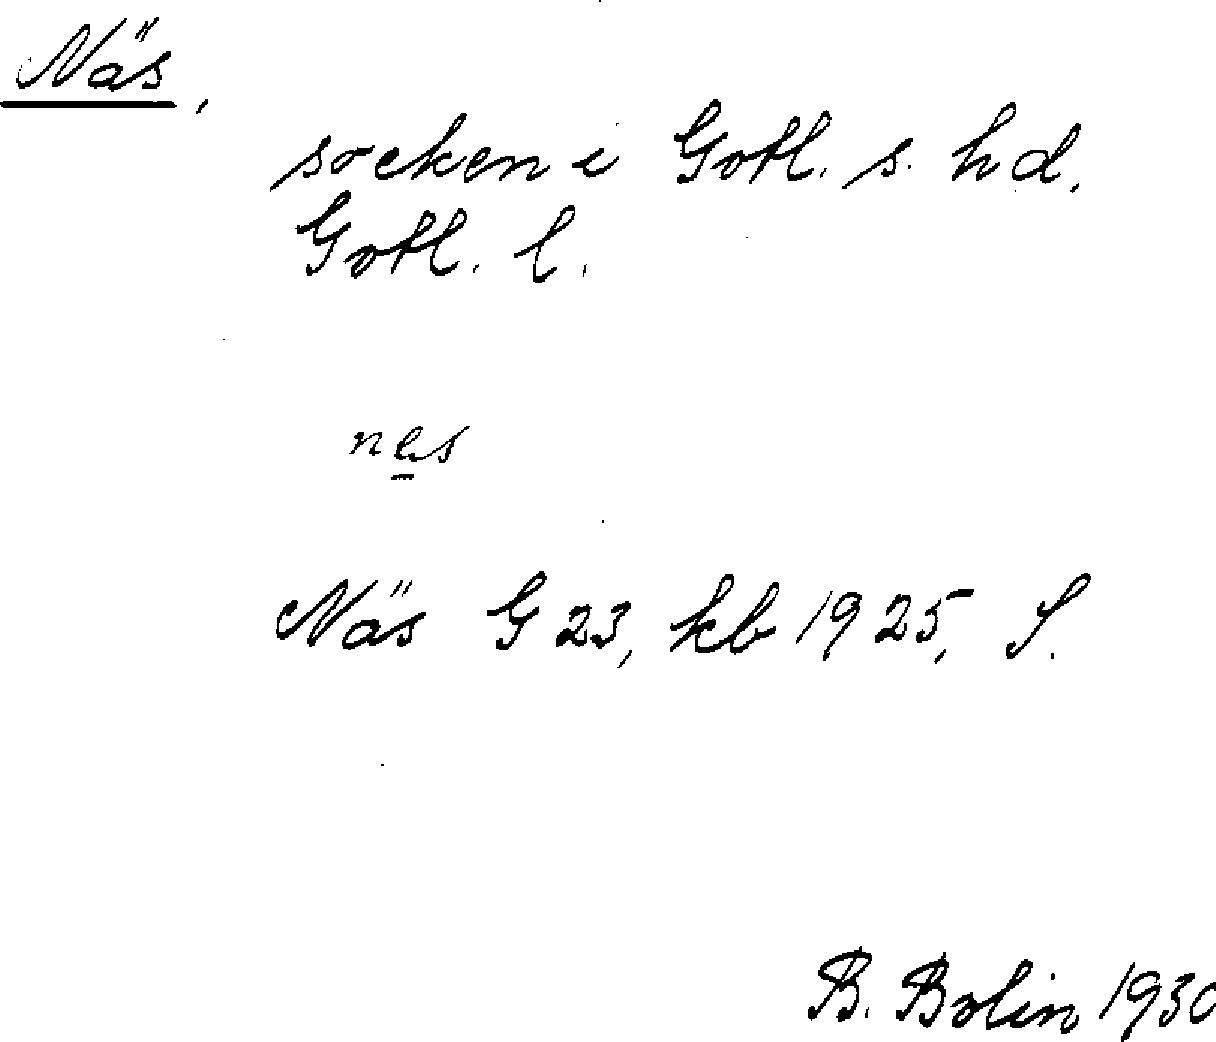 Näs,
socken i Gotl. s. hd.
Gotl. l.
nes
Näs G 23, kb 1925, S.
B. Bolin 1930